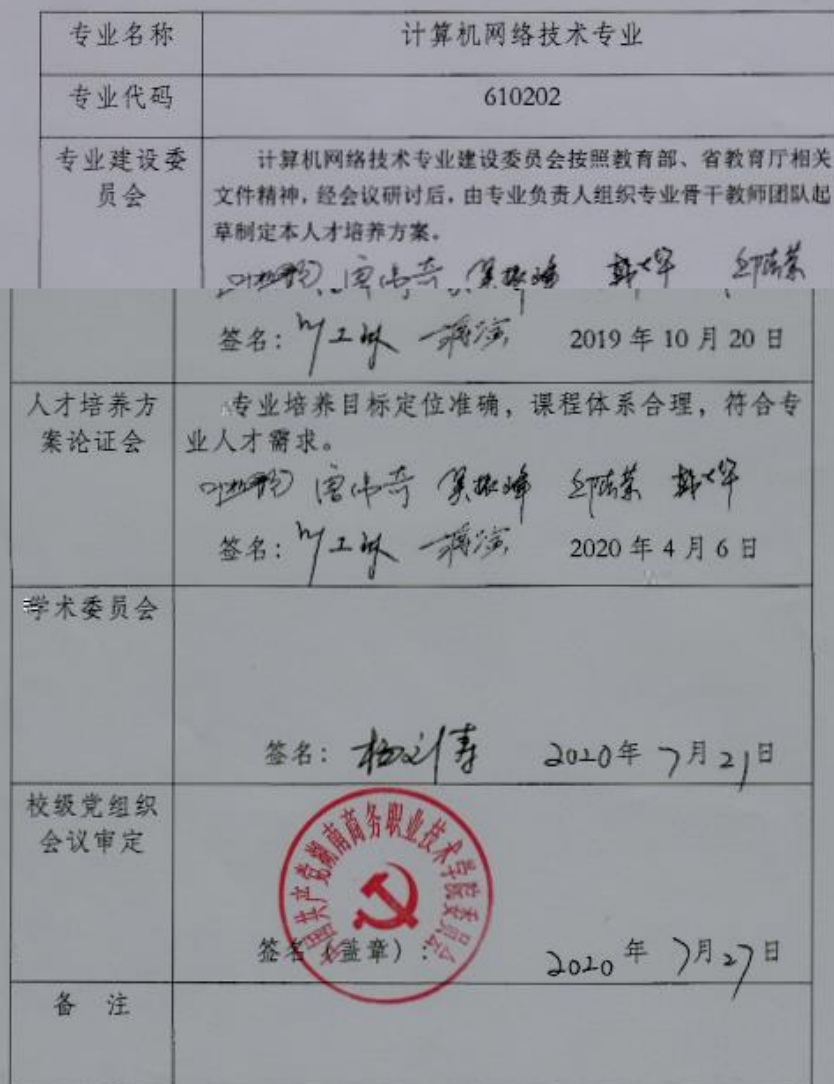 专业名称
计算机网络技术专业
专业代码
610202
专业建设委
员会
计算机网络技术专业建设委员会按照教育部、省教育厅相关
文件精神，经会议研讨后，由专业负责人组织专业骨干教师团队起
草制定本人才培养方案。
签名：
2019 年 10 月 20 日
人才培养方
案论证会
专业培养目标定位准确，课程体系合理，符合专
业人才需求。
签名：
2020 年 4 月 6 日
学术委员会
签名：
2020年 7月21日
校级党组织
会议审定
中国共产党湖南商务职业技术学院委员会
签名（盖章）：
2020 年 7月27日
备 注